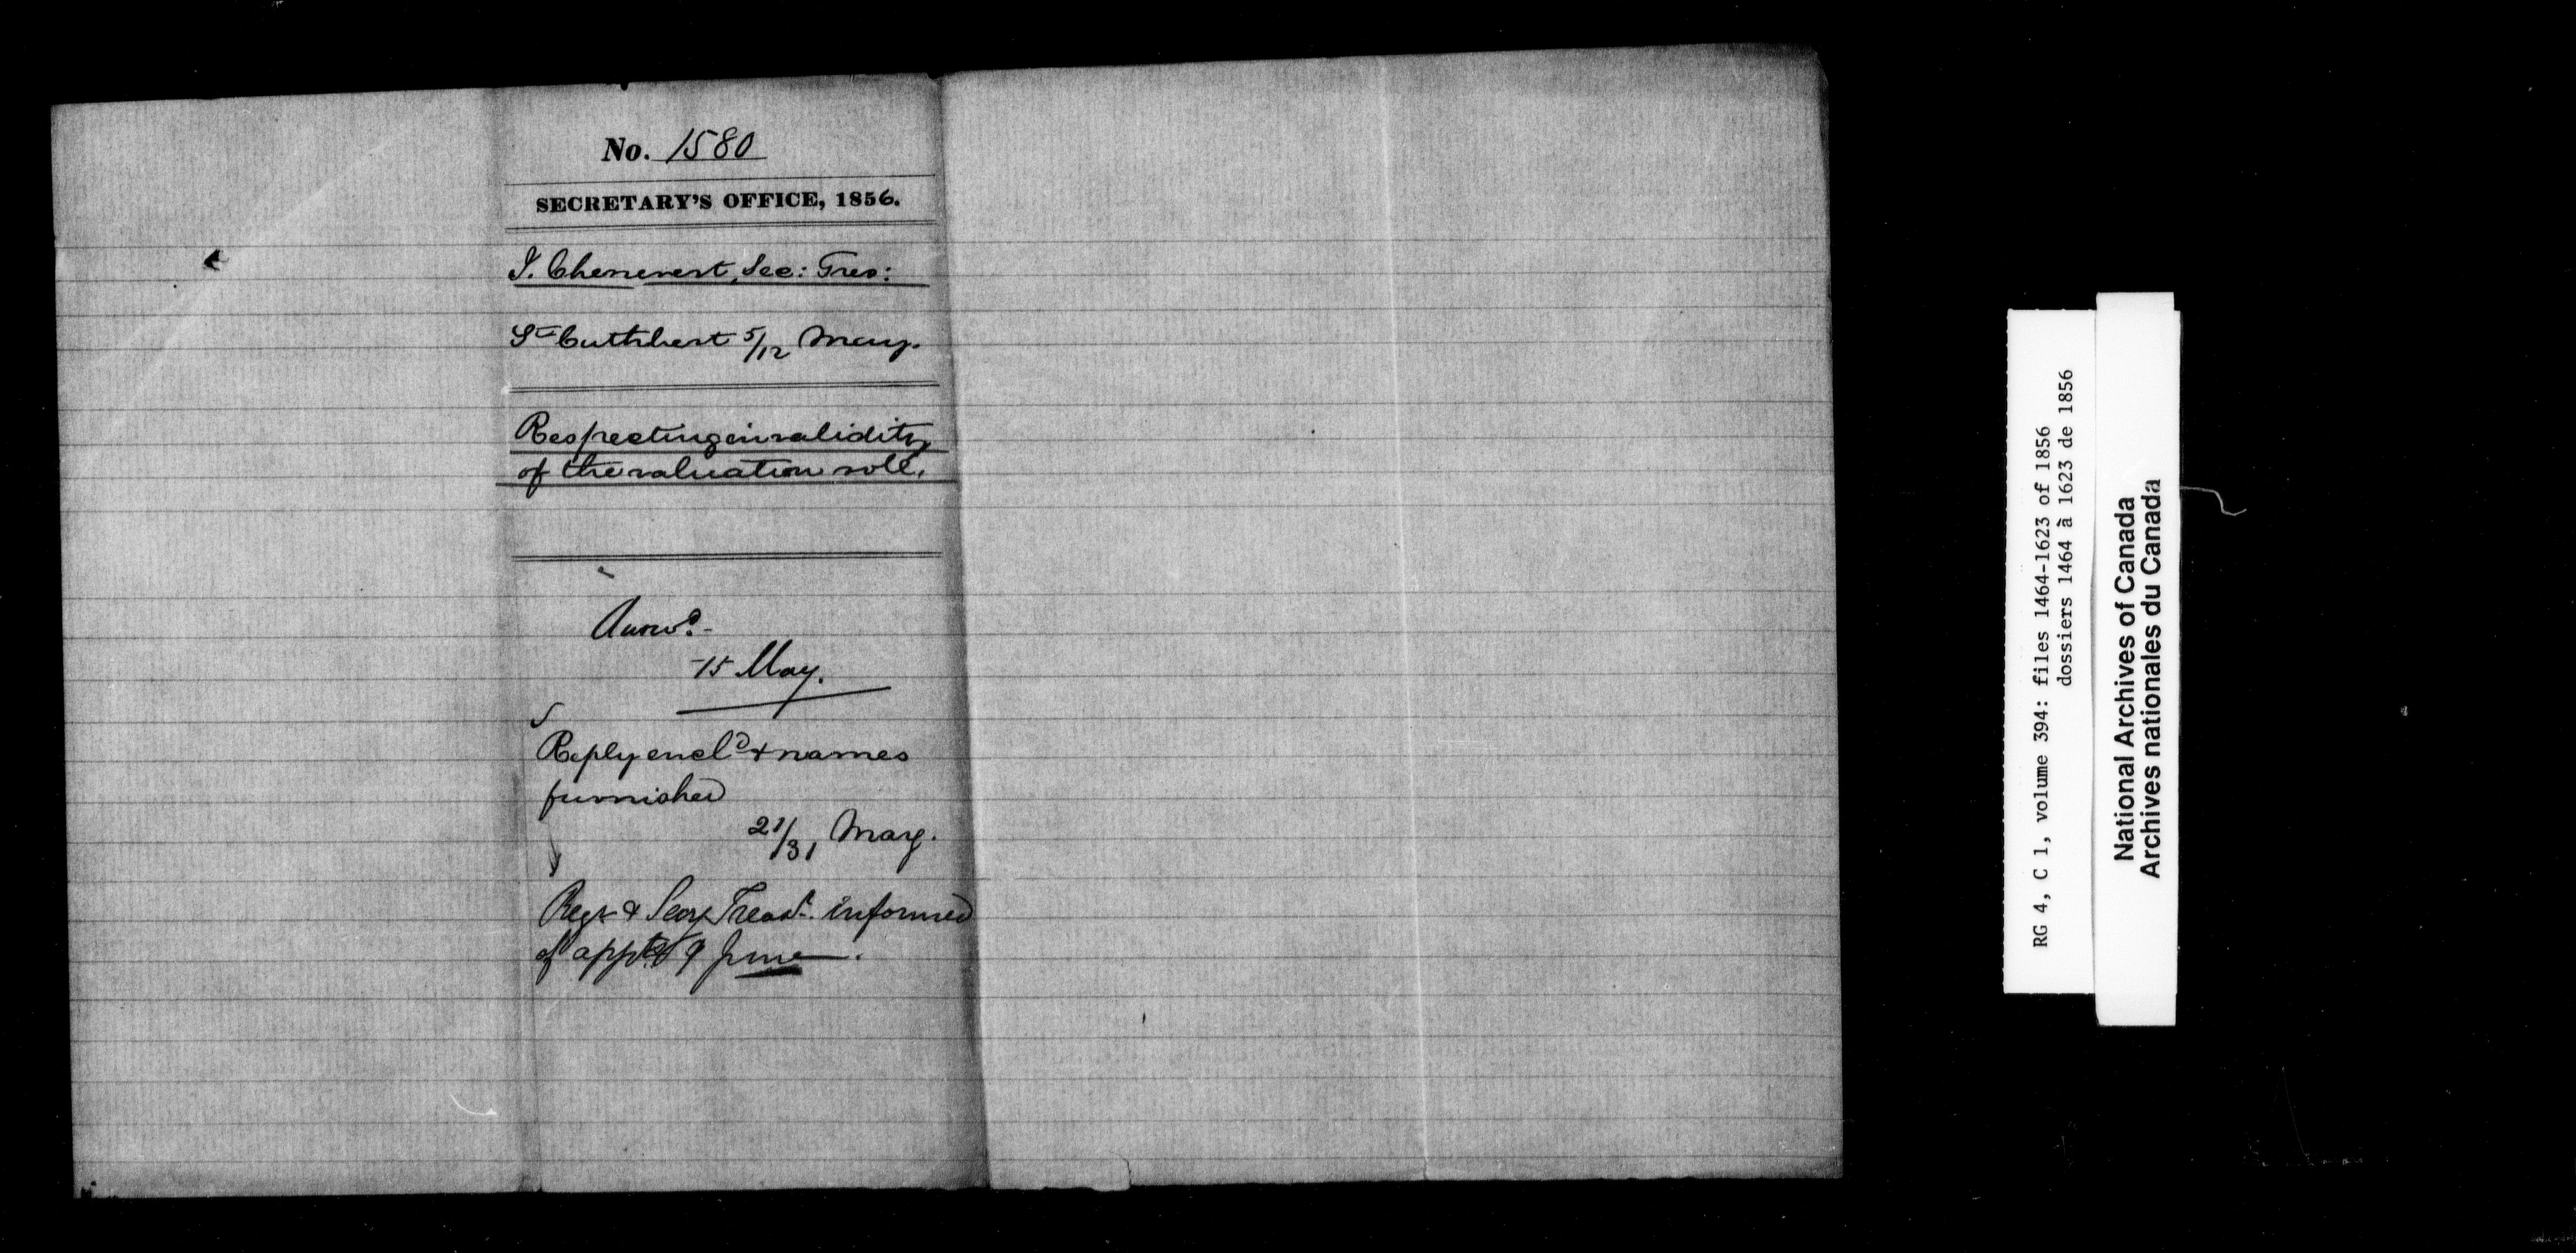 No. 1580
SECRETARY'S OFFICE, 1856.
J. Chenevert, Sec: Tres:
St Cuthbert 5/12 May.
Respecting invalidity
of the valuation roll.
Answd.-
15 May.
Reply encld & names
furnished
21/31 May.
Regr & Secy Treasr. informed
of appt 9 June.
RG 4, C 1, volume 394: files 1464-1623 of 1856
dossiers 1464 à 1623 de 1856
National Archives of Canada
Archives nationales du Canada